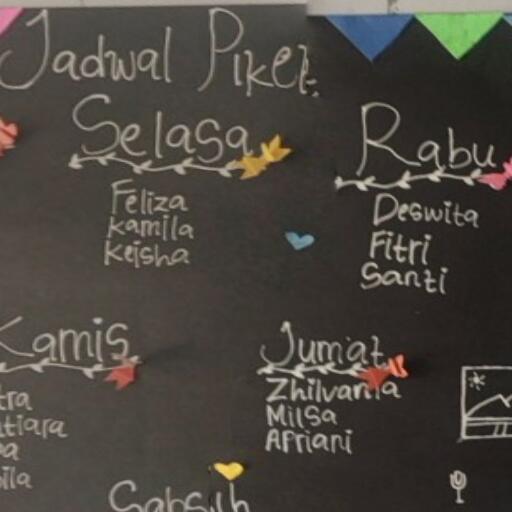 Jadwal Piket
Selasa
Feliza
kamila
keisha
Rabu
Deswita
Fitri
Santi
Kamis
tra
tiara
a
ila
Jumat
Zhilvania
Milsa
Apriani